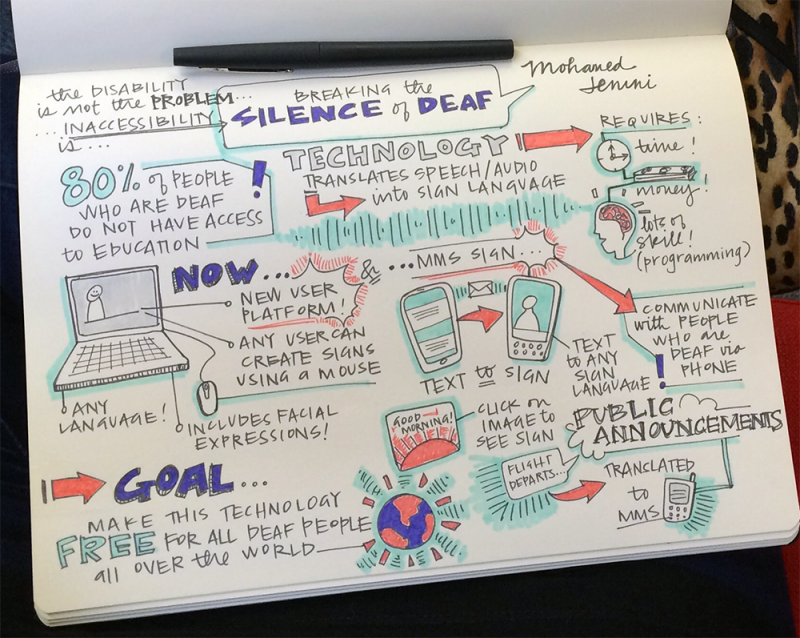 the DISABILITY
is not the PROBLEM...
... INACCESSIBILITY
is...
BREAKING the
SILENCE of DEAF
Mohamed
Jemni
80% of PEOPLE
WHO ARE DEAF
DO NOT HAVE ACCESS
to EDUCATION
!
TECHNOLOGY
TRANSLATES SPEECH/AUDIO
into SIGN LANGUAGE
REQUIRES:
time!
money!
lots of
skill!
(programming)
NOW...
NEW USER
PLATFORM!
ANY USER CAN
CREATE SIGNS
USING A MOUSE
ANY
LANGUAGE!
INCLUDES FACIAL
EXPRESSIONS!
&
...MMS SIGN...
TEXT to SIGN
TEXT
to ANY
SIGN
LANGUAGE
COMMUNICATE
with PEOPLE
WHO are
DEAF via
PHONE
!
GOOD
MORNING!
CLICK on
IMAGE to
SEE SIGN
PUBLIC
ANNOUNCEMENTS
FLIGHT
DEPARTS...
TRANSLATED
to
MMS
GOAL...
MAKE THIS TECHNOLOGY
FREE FOR ALL DEAF PEOPLE
all OVER the WORLD